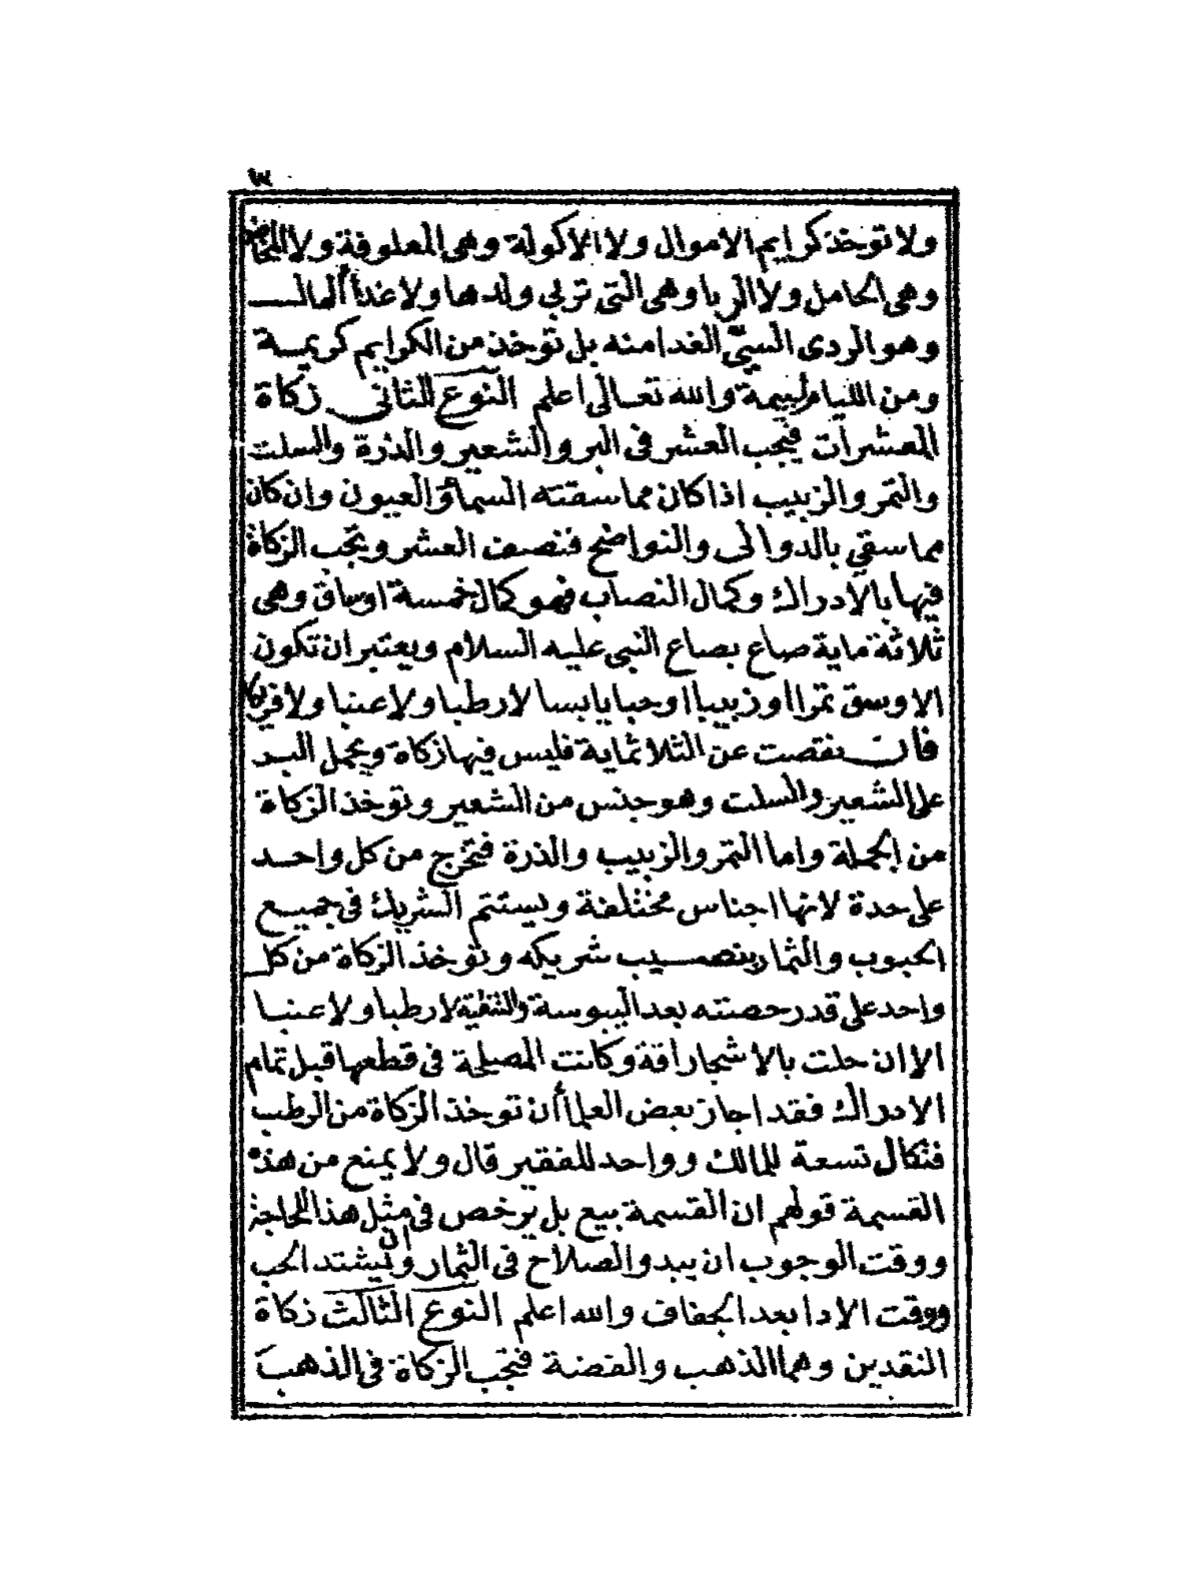 ٣
ولا توخذ كرايم الاموال ولا الاكولة وهي المعلوفة ولا الماخض
وهي الحامل ولا الربا وهي التي تربي ولدها ولا غدأ المال
وهو الردى السيّ الغدا منه بل توخذ من الكرايم كريمة
ومن الليام لييمة والله تعالى اعلم النوع الثاني زكاة
المعشرات فيجب العشر في البر والشعير والذرة والسلت
والتمر والزبيب اذا كان مما سقته السمأ والعيون وان كان
مما سقي بالدوالى والنواضح فنصف العشر وتجب الزكاة
فيها بالادراك وكمال النصاب فهو كمال خمسة اوساق وهي
ثلاثة ماية صاع بصاع النبي عليه السلام ويعتبر ان تكون
الاوسق تمرا او زبيبا او حبا يابسا لا رطبا ولا عنبا ولا فريكا
فان نقصت عن الثلاثماية فليس فيها زكاة ويحمل البر
على الشعير والسلت وهو جنس من الشعير وتوخذ الزكاة
من الجملة واما التمر والزبيب والذرة فتخرج من كل واحد
على حدة لانها اجناس مختلفة ويستتم الشريك في جميع
الحبوب والثمار بنصيب شريكه وتوخذ الزكاة من كل
واحد على قدر حصته بعد اليبوسة والتنقية لا رطبا ولا عنبا
الا ان حلت بالاشجار افة وكانت المصلحة في قطعها قبل تمام
الادراك فقد اجاز بعض العلمأ ان توخذ الزكاة من الرطب
فتكال تسعة للمالك وواحد للفقير قال ولا يمنع من هذه
القسمة قولهم ان القسمة بيع بل يرخص في مثل هذا للحاجة
ووقت الوجوب ان يبدو الصلاح في الثمار وان يشتد الحب
ووقت الادا بعد الجفاف والله اعلم النوع الثالث زكاة
النقدين وهما الذهب والفضة فتجب الزكاة في الذهب